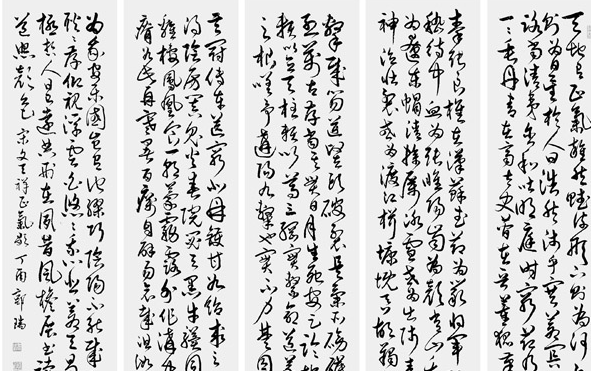 天地有正氣雜然賦流形下則為河
則為日星於人曰浩然沛乎塞蒼冥皇
路當清夷含和吐明庭時窮節乃
一一垂丹青在齊太史簡在晉董狐筆
秦張良椎在漢蘇武節為嚴將軍
嵇侍中血為張睢陽齒為顏常山舌
為遼東帽清操厲冰雪或為出師表
神泣壯烈或為渡江楫慷慨吞胡羯
擊賊笏逆豎頭破裂是氣所磅礴
烈萬古存當其貫日月生死安足論地
賴以立天柱賴以尊三綱實繫命道義
之根嗟予遘陽九隸也實不力楚囚
其冠傳車送窮北鼎鑊甘如飴求之
得陰房闃鬼火春院閟天黑牛驥同
雞棲鳳凰食一朝蒙霧露分作溝中
瘠如此再寒暑百癘自辟易哀哉沮洳
為我安樂國豈有他繆巧陰陽不能賊
耿耿存仰視浮雲白悠悠我心悲蒼天曷
極哲人日已遠典刑在夙昔風檐展書讀
道照顏色 宋文天祥正氣歌 丁酉 郭瑞